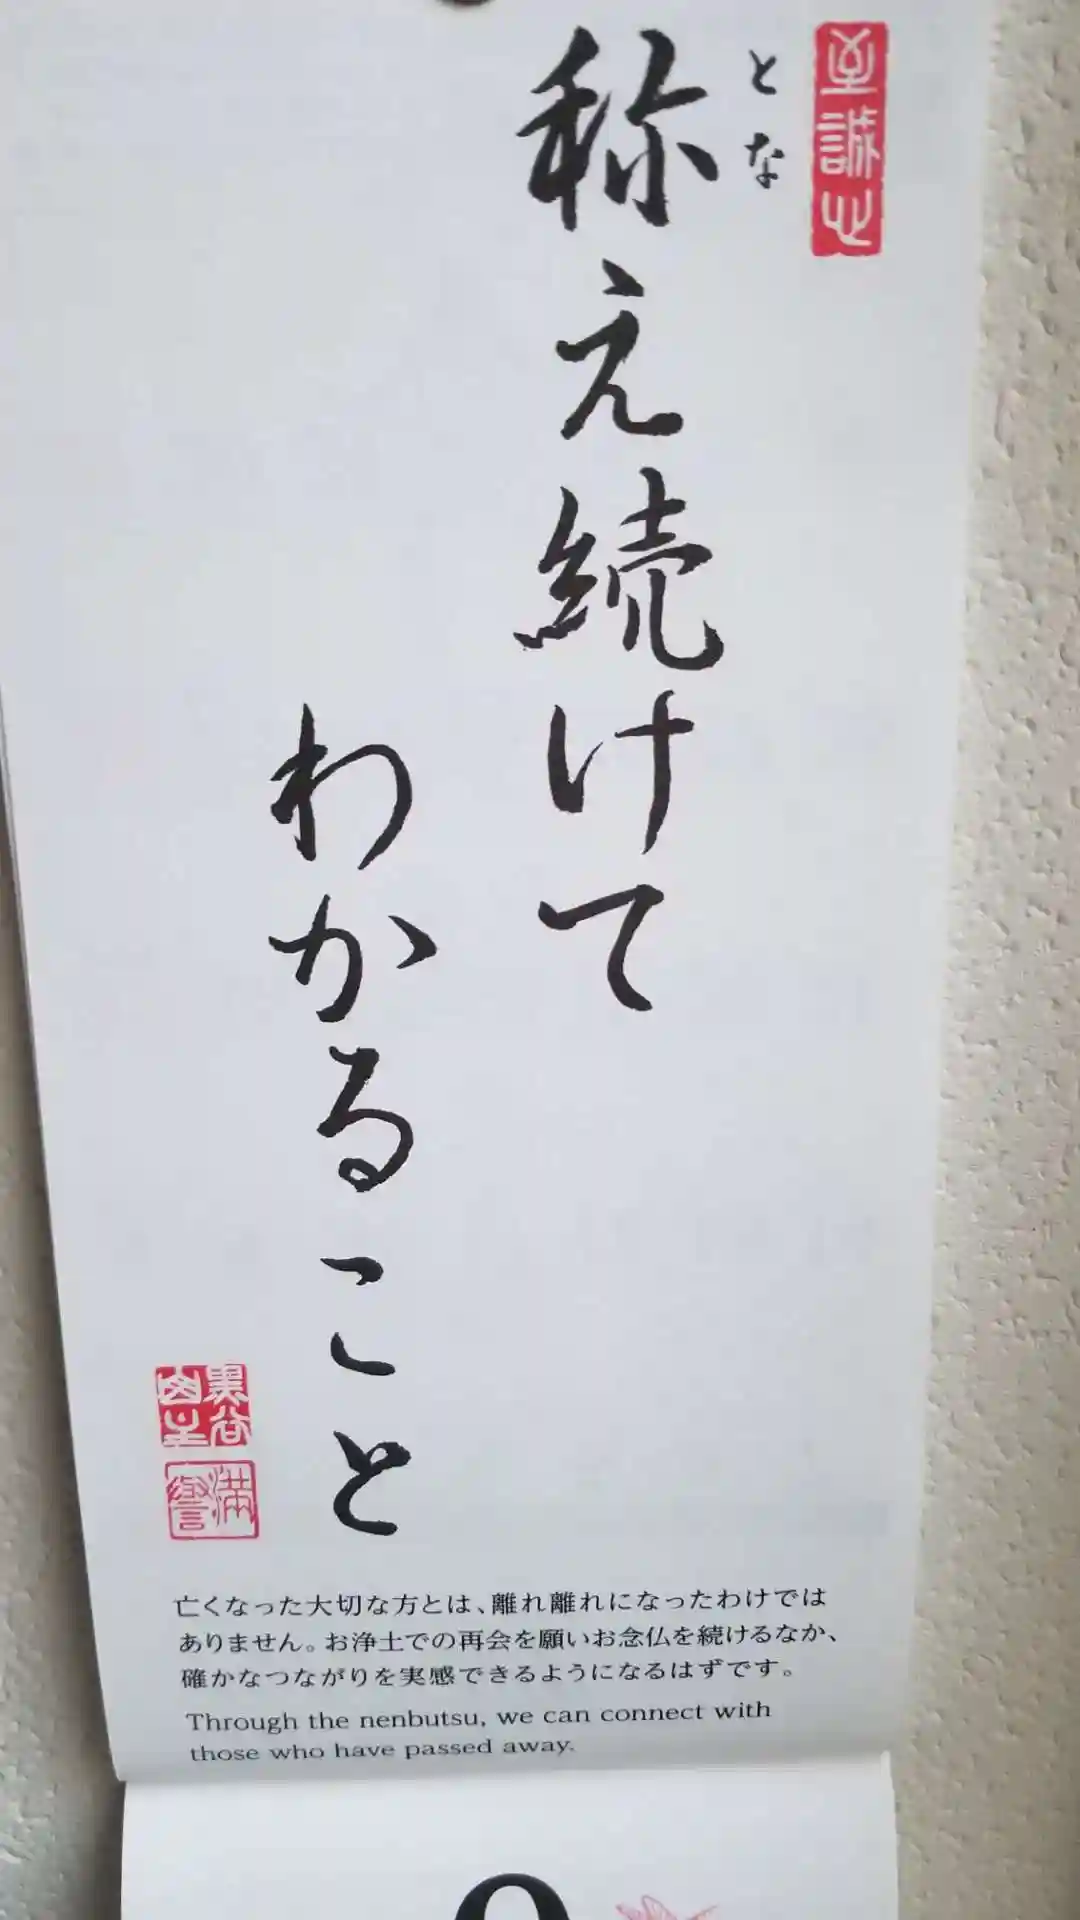 至誠心
とな
称え続けて
わかること
黒谷
満誉
亡くなった大切な方とは、離れ離れになったわけでは
ありません。お浄土での再会を願いお念仏を続けるなか、
確かなつながりを実感できるようになるはずです。
Through the nenbutsu, we can connect with
those who have passed away.